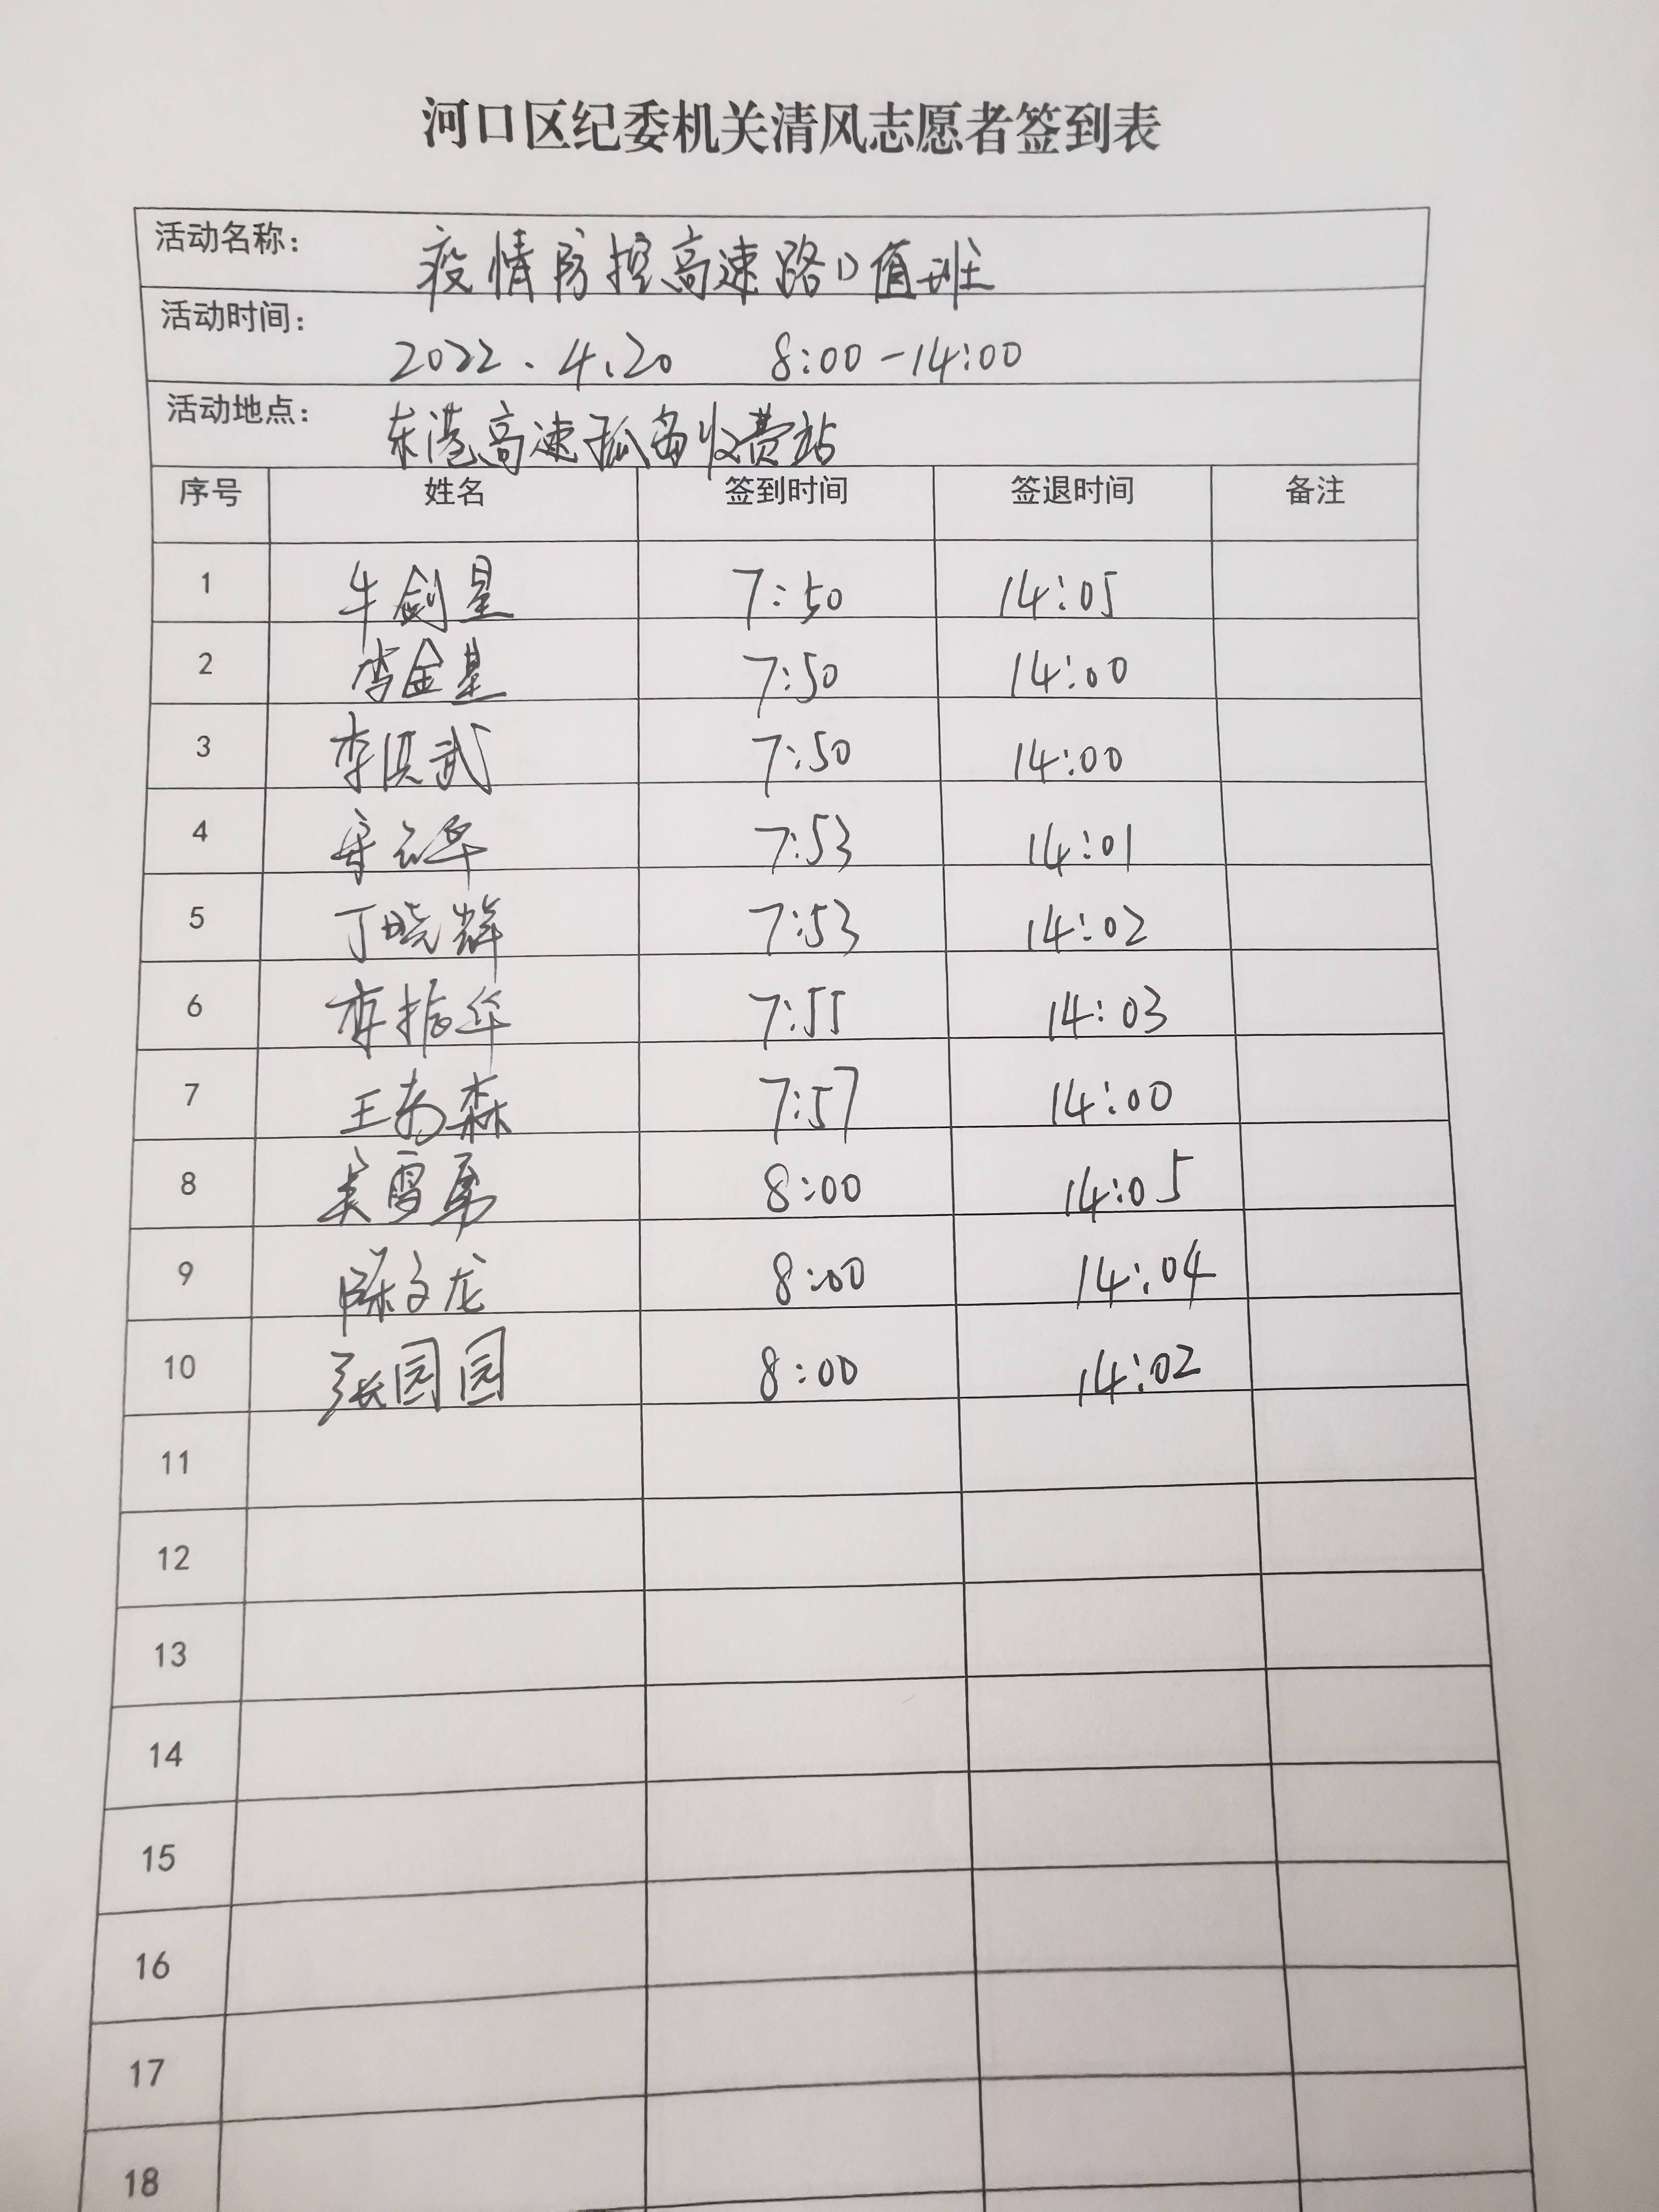 河口区纪委机关清风志愿者签到表
活动名称： 疫情防控高速路口值班
活动时间： 2022.4.20 8:00-14:00
活动地点： 东港高速孤岛收费站
序号 姓名 签到时间 签退时间 备注
1 牛剑星 7:50 14:05
2 李金星 7:50 14:00
3 李洪武 7:50 14:00
4 7:53 14:01
5 丁晓辉 7:53 14:02
6 李振华 7:55 14:03
7 王 森 7:57 14:00
8 吴雪勇 8:00 14:05
9 陈文龙 8:00 14:04
10 张园园 8:00 14:02
11
12
13
14
15
16
17
18